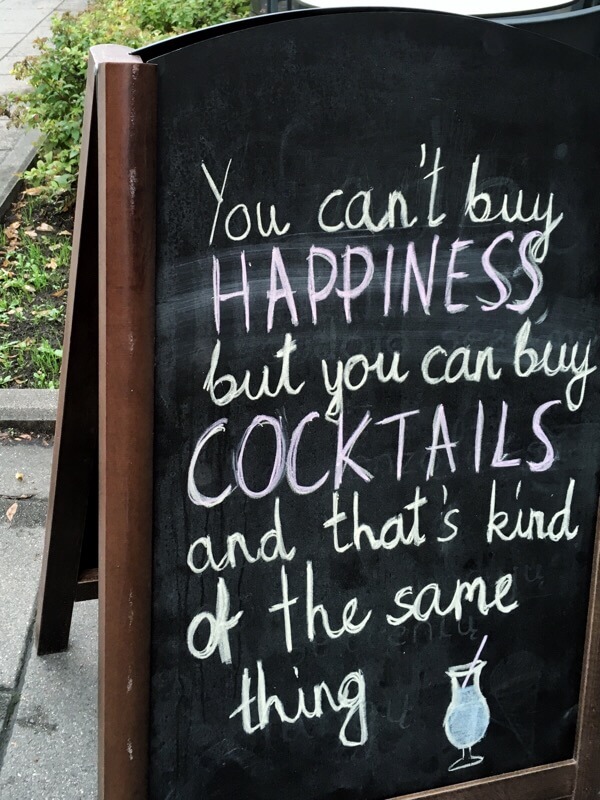 You can't buy
HAPPINESS
but you can buy
COCKTAILS
and that's kind
of the same
thing